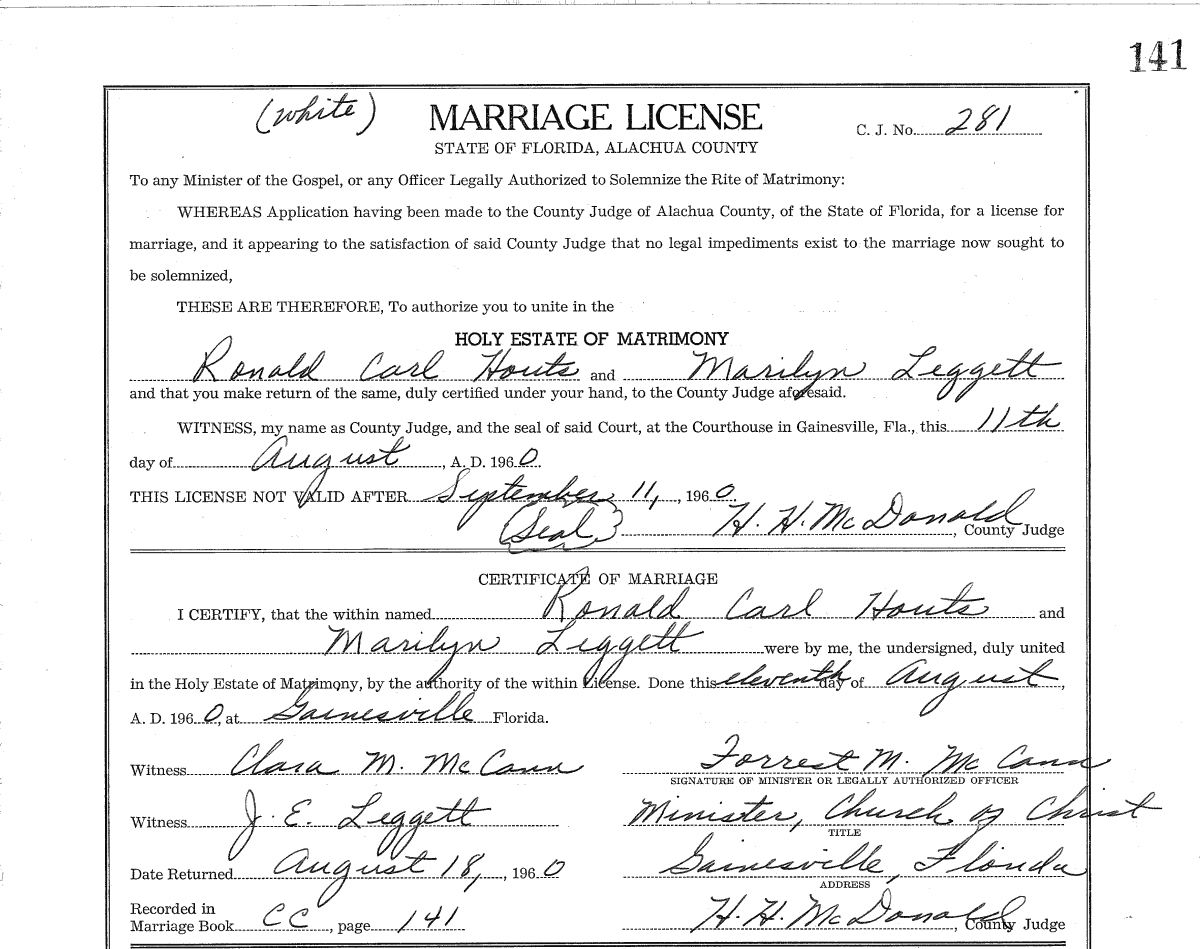 141
(white)
MARRIAGE LICENSE
C. J. No. 281
STATE OF FLORIDA, ALACHUA COUNTY
To any Minister of the Gospel, or any Officer Legally Authorized to Solemnize the Rite of Matrimony:
WHEREAS Application having been made to the County Judge of Alachua County, of the State of Florida, for a license for
marriage, and it appearing to the satisfaction of said County Judge that no legal impediments exist to the marriage now sought to
be solemnized,
THESE ARE THEREFORE, To authorize you to unite in the
HOLY ESTATE OF MATRIMONY
Ronald Carl Houts and Marilyn Leggett
and that you make return of the same, duly certified under your hand, to the County Judge aforesaid.
WITNESS, my name as County Judge, and the seal of said Court, at the Courthouse in Gainesville, Fla., this 11th
day of August, A. D. 1960.
THIS LICENSE NOT VALID AFTER September 11, , 1960.
(Seal) H. H. McDonald, County Judge
CERTIFICATE OF MARRIAGE
I CERTIFY, that the within named Ronald Carl Houts and
Marilyn Leggett were by me, the undersigned, duly united
in the Holy Estate of Matrimony, by the authority of the within License. Done this eleventh day of August,
A. D. 1960, at Gainesville Florida.
Witness Clara M. McCann Forrest M. McCann
SIGNATURE OF MINISTER OR LEGALLY AUTHORIZED OFFICER
Witness J. E. Leggett Minister, Church of Christ
TITLE
Date Returned August 18, , 1960 Gainesville, Florida
ADDRESS
Recorded in
Marriage Book CC, page 141 H. H. McDonald, County Judge